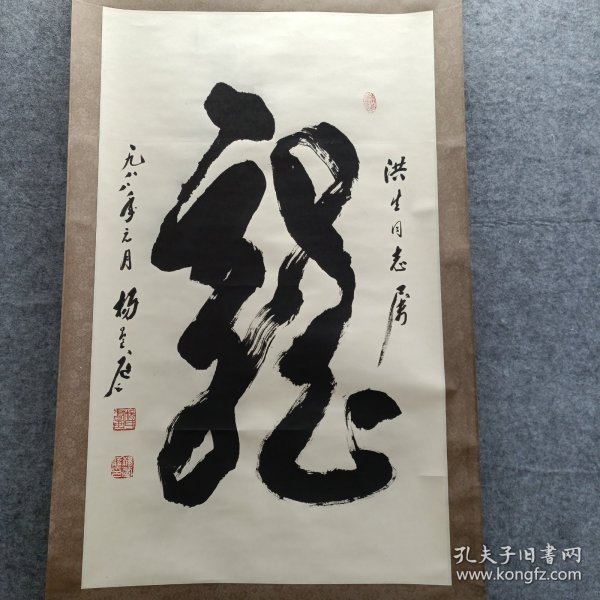 洪生同志属
龍
一九八八年元月
杨
孔夫子旧书网
www.kongfz.com